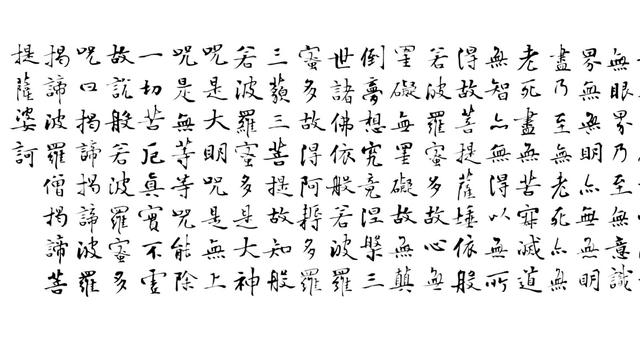 無眼界乃至無意識
界無無明亦無無明
盡乃至無老死亦無
老死盡無苦寂滅道
無智亦無得以無所
得故菩提薩埵依般
若波羅蜜多故心無
罣礙無罣礙故無顛
倒夢想究竟涅槃三
世諸佛依般若波羅
蜜多故得阿耨多羅
三藐三菩提故知般
若波羅蜜多是大神
咒是大明咒是無上
咒是無等等咒能除
一切苦厄真實不虛
故說般若波羅蜜多
咒曰揭諦揭諦波羅
揭諦波羅僧揭諦菩
提薩婆訶